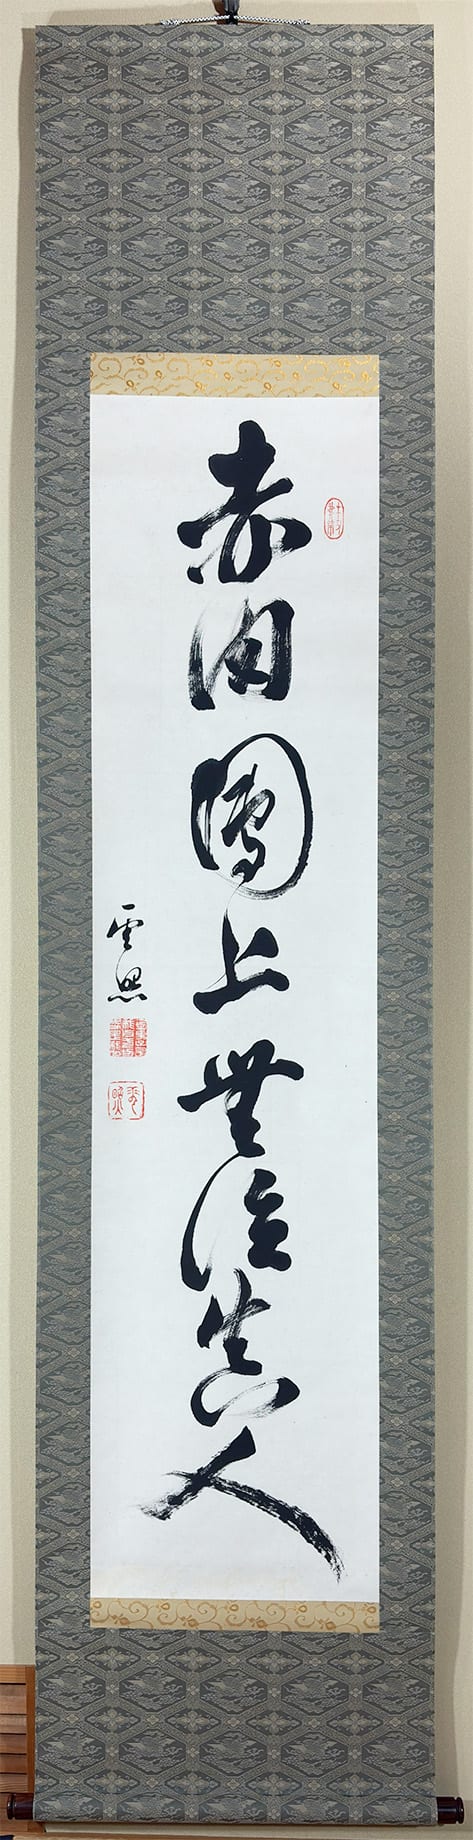 赤肉團上無位真人
雲照